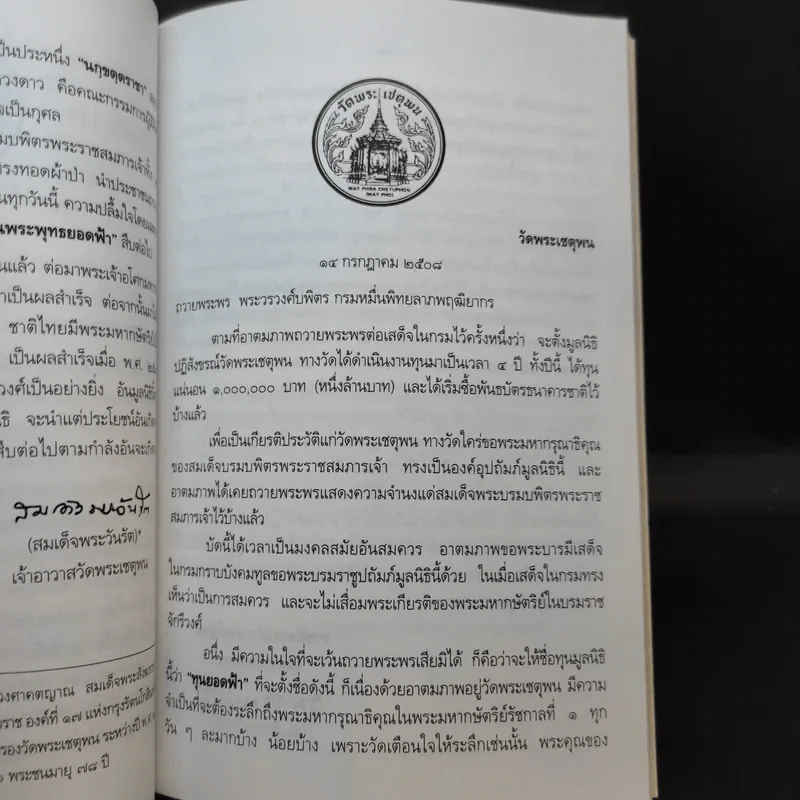 เป็นประหนึ่ง "นกฺขตฺตราชา"
วงดาว คือคณะกรรมการผู้มี
จเป็นกุศล
มบพิตรพระราชสมภารเจ้าทั้ง
รงทอดผ้าป่า นำประชาชน
นทุกวันนี้ ความปลื้มใจโดยเฉพาะ
นพระพุทธยอดฟ้า" สืบต่อไป
นแล้ว ต่อมาพระเจ้าอโศกมหา
าเป็นผลสำเร็จ ต่อจากนั้นมา
ชาติไทยมีพระมหากษัตริย์
เป็นผลสำเร็จเมื่อ พ.ศ.
วงศ์เป็นอย่างยิ่ง อันมูลนิธิ
ธิ จะนำแต่ประโยชน์อันเกิด
สืบต่อไปตามกำลังอันจะเกิด
(สมเด็จพระวันรัต)*
เจ้าอาวาสวัดพระเชตุพน
วงศาคตญาณ สมเด็จพระสังฆ
ราช องค์ที่ ๑๗ แห่งกรุงรัตนโกสินทร์
รองวัดพระเชตุพน ระหว่างปี พ.ศ.
พระชนมายุ ๗๘ ปี
วัดพระเชตุพน
WAT PHRA CHETUPHON
(WAT PHO)
วัดพระเชตุพน
๑๔ กรกฎาคม ๒๕๐๘
ถวายพระพร พระวรวงศ์บพิตร กรมหมื่นพิทยลาภพฤฒิยากร
ตามที่อาตมภาพถวายพระพรต่อเสด็จในกรมไว้ครั้งหนึ่งว่า จะตั้งมูลนิธิ
ปฏิสังขรณ์วัดพระเชตุพน ทางวัดได้ดำเนินงานทุนมาเป็นเวลา ๔ ปี ทั้งปีนี้ ได้ทุน
แน่นอน ๑,๐๐๐,๐๐๐ บาท (หนึ่งล้านบาท) และได้เริ่มซื้อพันธบัตรธนาคารชาติไว้
บ้างแล้ว
เพื่อเป็นเกียรติประวัติแก่วัดพระเชตุพน ทางวัดใคร่ขอพระมหากรุณาธิคุณ
ของสมเด็จบรมบพิตรพระราชสมภารเจ้า ทรงเป็นองค์อุปถัมภ์มูลนิธินี้ และ
อาตมภาพได้เคยถวายพระพรแสดงความจำนงแด่สมเด็จพระบรมบพิตรพระราช
สมภารเจ้าไว้บ้างแล้ว
บัดนี้ได้เวลาเป็นมงคลสมัยอันสมควร อาตมภาพขอพระบารมีเสด็จ
ในกรมกราบบังคมทูลขอพระบรมราชูปถัมภ์มูลนิธินี้ด้วย ในเมื่อเสด็จในกรมทรง
เห็นว่าเป็นการสมควร และจะไม่เสื่อมพระเกียรติของพระมหากษัตริย์ในบรมราช
จักรีวงศ์
อนึ่ง มีความในใจที่จะเว้นถวายพระพรเสียมิได้ ก็คือว่าจะให้ชื่อทุนมูลนิธิ
นี้ว่า "ทุนยอดฟ้า" ที่จะตั้งชื่อดังนี้ ก็เนื่องด้วยอาตมภาพอยู่วัดพระเชตุพน มีความ
จำเป็นที่จะต้องระลึกถึงพระมหากรุณาธิคุณในพระมหากษัตริย์รัชกาลที่ ๑ ทุก
วัน ๆ ละมากบ้าง น้อยบ้าง เพราะวัดเตือนใจให้ระลึกเช่นนั้น พระคุณของ